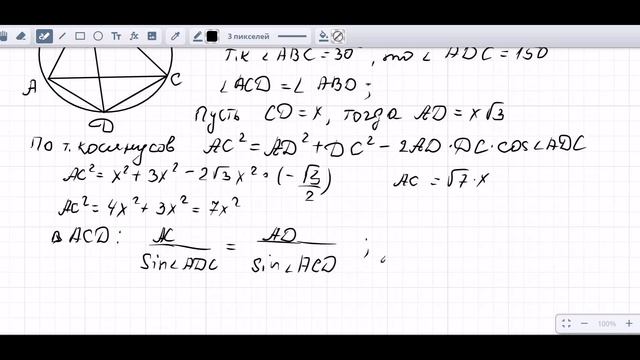 3 пикселей
Т.к ∠ABC = 30°, то ∠ADC = 150
∠ACD = ∠ABD;
A
C
D
Пусть CD = x, тогда AD = x√3
По т. косинусов AC² = AD² + DC² - 2AD·DC·cos∠ADC
AC² = x² + 3x² - 2√3x² · (-√3/2)
AC = √7·x
AC² = 4x² + 3x² = 7x²
в ACD: AC/sin∠ADC = AD/sin∠ACD ;
100%